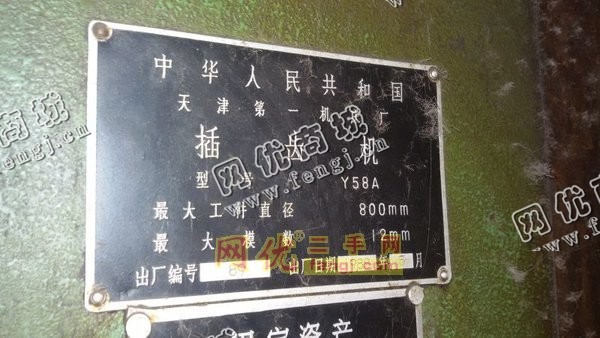 中华人民共和国
天津第一机 厂
插齿机
型号 Y58A
最大工件直径 800mm
最大模数 12mm
出厂编号 8 出厂日期 年 月
固定资产
网优商城
www.fengj.cn
网优商城
www.fengj.cn
网优商城
www.fengj.cn
网优®二手网